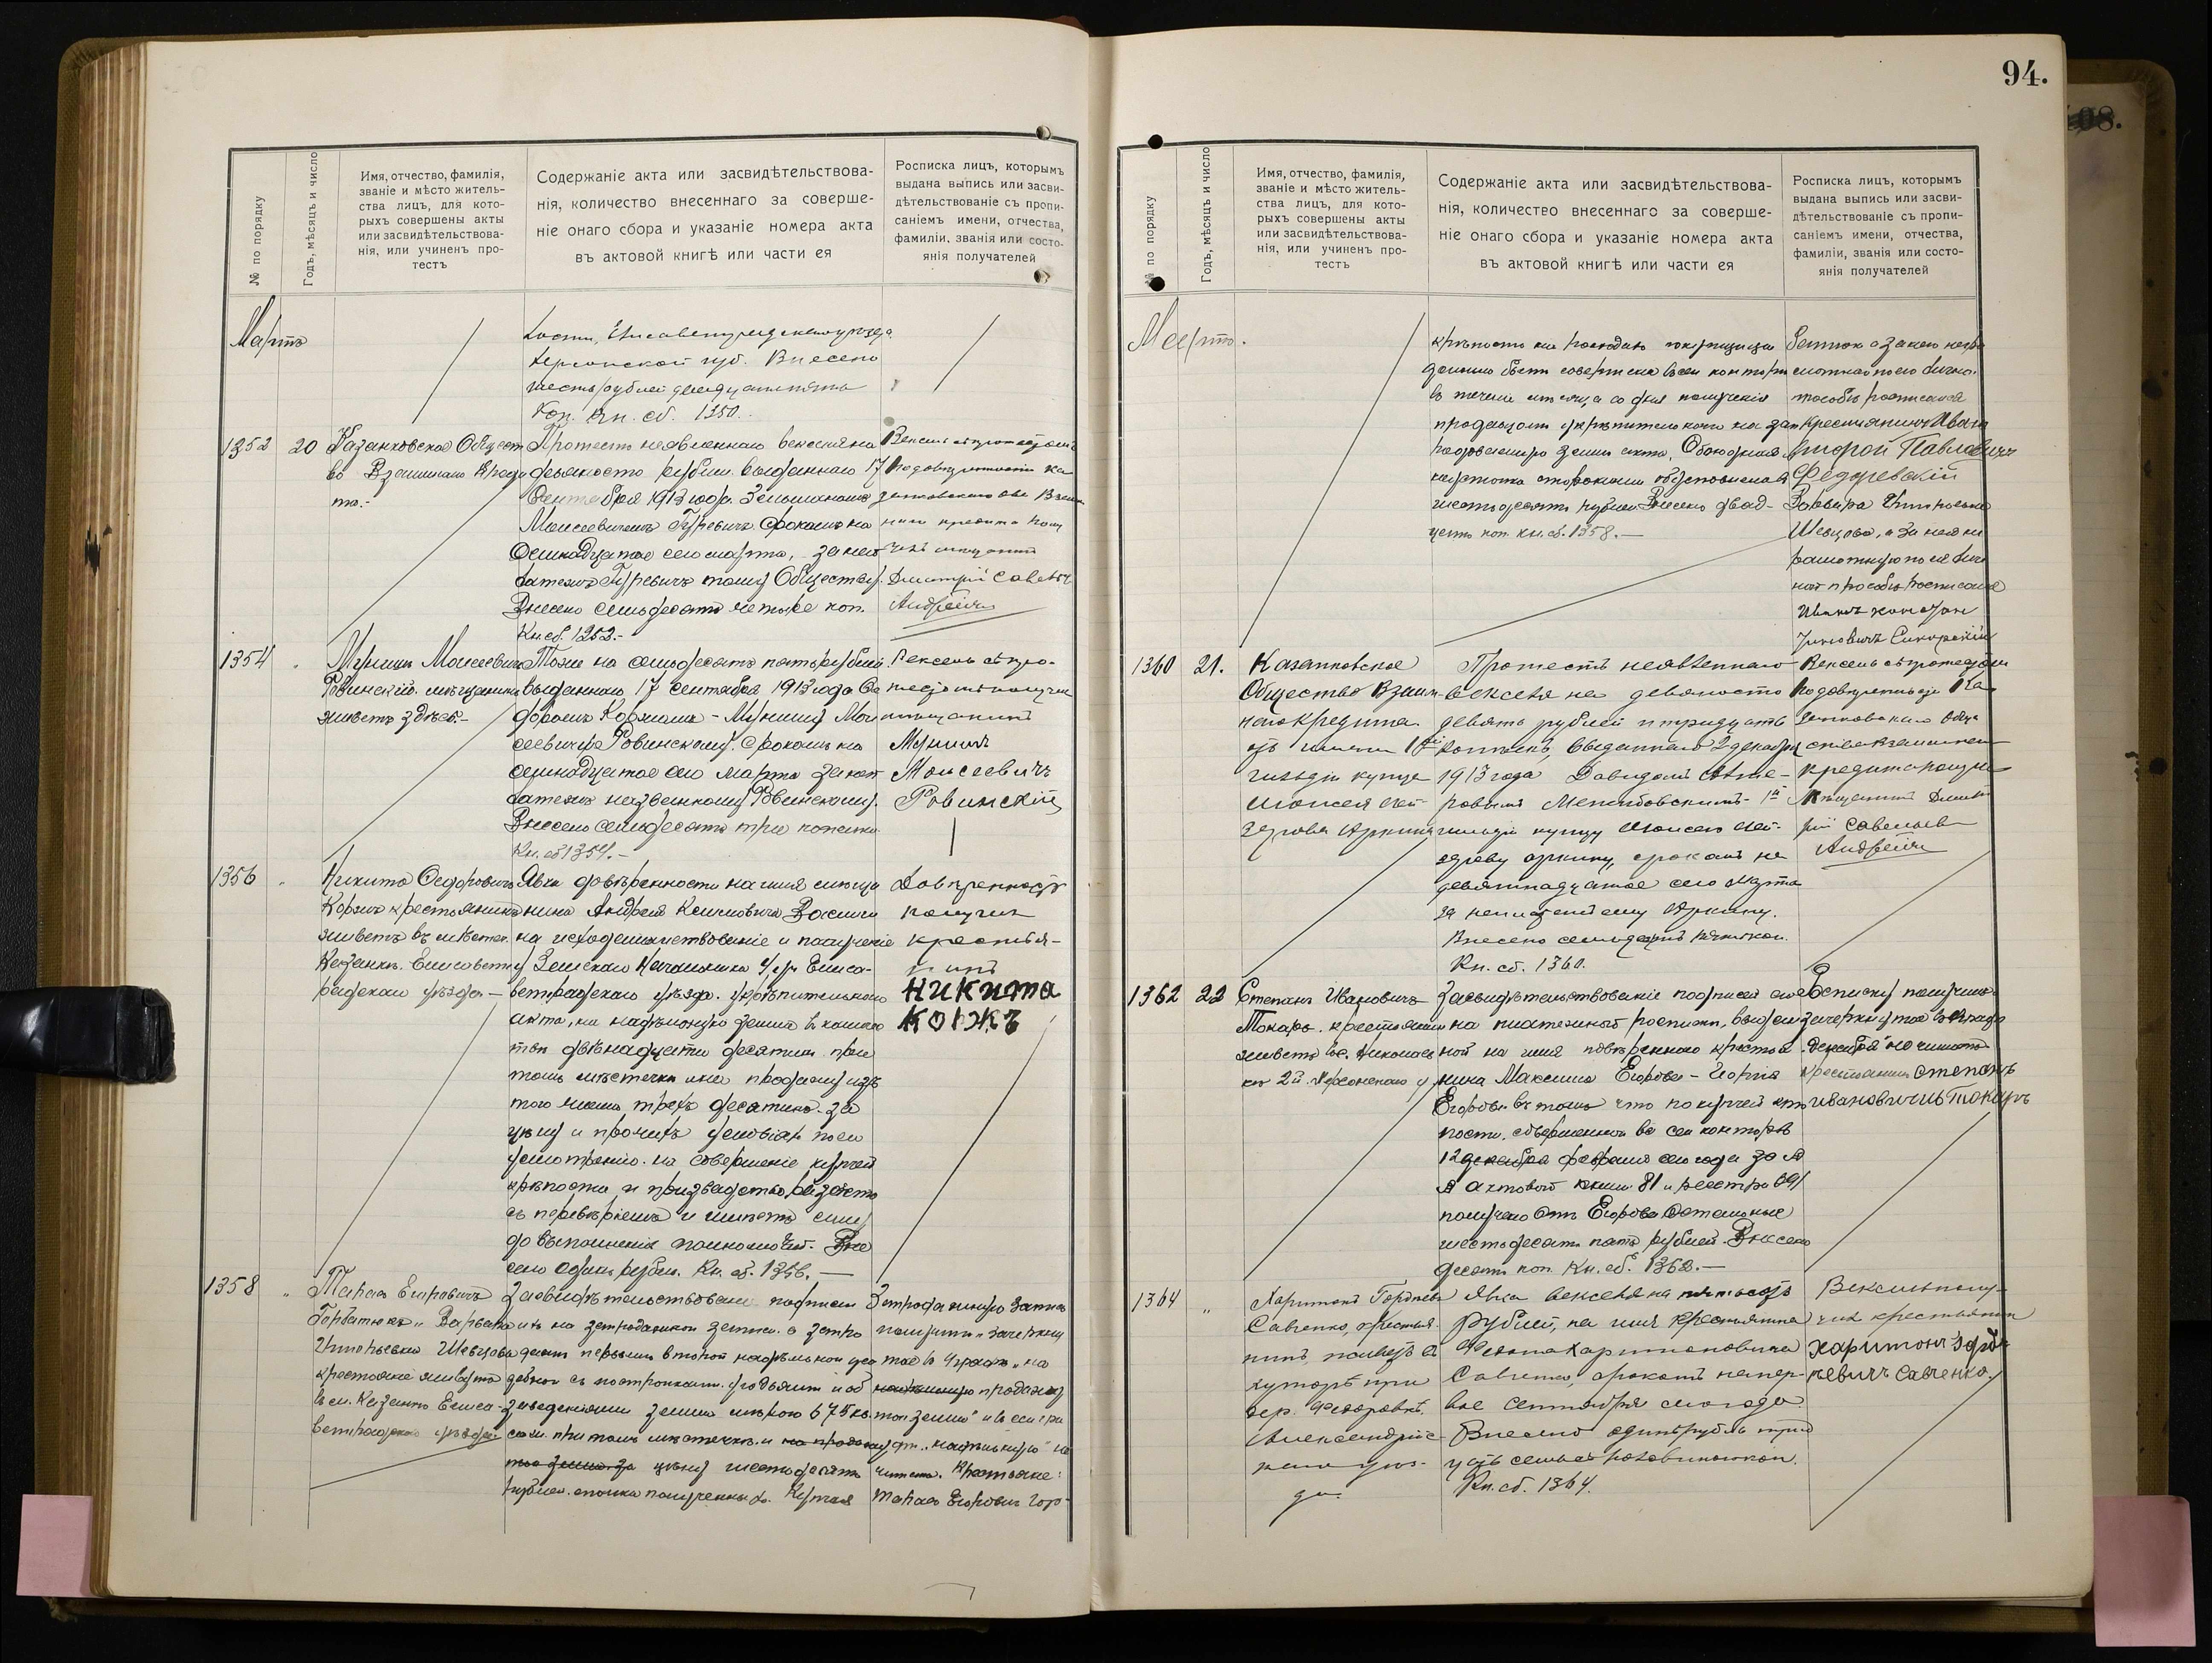 94.
108.
№ по порядку
Годъ, мѣсяцъ и число
Имя, отчество, фамилія,
званіе и мѣсто житель-
ства лицъ, для кото-
рыхъ совершены акты
или засвидѣтельствова-
нія, или учиненъ про-
тестъ
Содержаніе акта или засвидѣтельствова-
нія, количество внесеннаго за соверше-
ніе онаго сбора и указаніе номера акта
въ актовой книгѣ или части ея
Росписка лицъ, которымъ
выдана выпись или засви-
дѣтельствованіе съ пропи-
саніемъ имени, отчества,
фамиліи, званія или состо-
янія получателей
Мартъ
Херсонской губ. Внесено
шесть рублей двадцать пять
Коп. Кн. сб. 1350.
1352
20
Казанковское Общест
во Взаимнаго Креди
та.-
Протестъ неявленнаго векселя на
девяносто рублей выданнаго 17
Сентября 1913 года
Моисеевичемъ Гуревичъ срокомъ на
семнадцатое сего марта, за не
Гуревичъ тому Обществу.
Внесено семьдесятъ четыре коп.
Кн. сб. 1352.-
Вексель съ протестомъ
по довѣренности Ка
занковскаго Взаим
наго кредита полу
чилъ мѣщанинъ
Дмитрій Савельев
Андрейчи
1354
Мунишъ Моисеевичъ
Ровинскій мѣщанинъ
живетъ здѣсь.-
Тоже на семьдесятъ пять рублей
выданнаго 17 сентября 1913 года
Мунишу Мои
сеевичу Ровинскому. срокомъ на
семнадцатое сего марта за не
платежъ названному Ровинскому.
Внесено семьдесятъ три копейки
Кн. сб. 1354.-
Вексель съ про-
тестомъ получилъ
мѣщанинъ
Мунишъ
Моисеевичъ
Ровинскій
1356
Никита Федоровичъ
Коржъ крестьянинъ
живетъ въ мѣстеч.
Казанкѣ. Елисавет
градскаго уѣзда.-
Явка довѣренности на имя мѣща
нина Андрея
на исходатайствованіе и полученіе
у Земскаго Начальника 4 уч. Елиса-
ветградскаго уѣзда. укрѣпительнаго
акта, на надѣльную землю въ количес
твѣ двѣнадцати десятин. при
томъ мѣстечкѣ и на продажу изъ
того числа трехъ десятинъ. за
цѣну и прочихъ условіяхъ по его
усмотрѣнію. на совершеніе купчей
крѣпости и
съ перевѣріемъ и
до выполненія полномочій. Вне
сено одинъ рубль. Кн. сб. 1356.—
Довѣренность
получилъ
крестья-
нинъ
Никита
КОРЖЪ
1358
Тарасъ Егоровичъ
Горбатюкъ и Варвара
Дмитріевна Шевцова
крестьяне живутъ
въ м. Казанкѣ Елиса-
ветградскаго уѣзда
Засвидѣтельствованіе подписей
ихъ на запродажной записи о запро
дажѣ первымъ второй надѣльной уса
дебной съ постройками. угодьями и об
заведеніями земли мѣрою 675 кв.
саж. при томъ мѣстечкѣ и на продажу
той земли за цѣну шестьдесятъ
рублей. сполна полученныхъ. Купчая
Запродажную запись
получили. Зачеркну
тое въ 4 графѣ „на
надѣльную продажу
той земли" и въ сей гра
фѣ „надѣльную" не
читать. Крестьяне:
Тарасъ Егоровичъ Гор-
№ по порядку
Годъ, мѣсяцъ и число
Имя, отчество, фамилія,
званіе и мѣсто житель-
ства лицъ, для кото-
рыхъ совершены акты
или засвидѣтельствова-
нія, или учиненъ про-
тестъ
Содержаніе акта или засвидѣтельствова-
нія, количество внесеннаго за соверше-
ніе онаго сбора и указаніе номера акта
въ актовой книгѣ или части ея
Росписка лицъ, которымъ
выдана выпись или засви-
дѣтельствованіе съ пропи-
саніемъ имени, отчества,
фамиліи, званія или состо-
янія получателей
Мартъ.
крѣпость на расходы покупщицы
должна быть совершена въ сей конторѣ
въ теченіи мѣсяца со дня полученія
продавцомъ укрѣпительнаго на за
продаваемую землю акта. Обоюдная
неустойка сторонами обусловлена въ
шестьдесятъ рублей Внесено двад-
цать коп. Кн. сб. 1358.—
батюкъ а за него негра
мотнаго по его лично.
просьбѣ росписался
крестьянинъ Иван
второй Павлович
Федоревскій
Варвара Дмитріевна
Шевцова, а за нея не
грамотную по ея лич
ной просьбѣ росписался
Иванъ Констан
тиновичъ Сикорскій
1360
21.
Казанковское
Общество Взаим-
наго Кредита.
отъ имени 1й
гильдіи купца
Моисея Лей-
зерова Аркина
Протестъ неявленнаго
векселя на девяносто
девять рублей и тридцать
копѣекъ, выданнаго 2 декабря
1913 года Давидомъ
1й
гильдіи купцу Моисею Лей-
зерову Аркину, срокомъ на
девятнадцатое сего марта
за неплатежъ ему Аркину.
Внесено семьдесятъ пять коп.
Кн. сб. 1360.
Вексель съ протестомъ
по довѣренности Ка-
занковскаго Обще
ства Взаимнаго
кредита получилъ
Мѣщанинъ Дмит
рій Савельев
Андрейчи
1362
22
Степанъ Ивановичъ
Токарь. крестьянинъ
живетъ въ с. Николаев
кѣ 2й. Херсонскаго у
Засвидѣтельствованіе подписи его
на платежной роспискѣ, выдан
ной на имя повѣреннаго крестья
нина Максима Егорова - Георгія
Егорова въ томъ что по купчей крѣ
пости. совершенной въ сей конторѣ
12 декабря февраля сего года за №
№ актовой книги 81 и реестра 691
получено Отъ Егорова Остальные
шестьдесятъ пять рублей. Внесено
десять коп. Кн. сб. 1362.—
Росписку получилъ
зачеркнутое въ 4 графѣ
„декабря" не читать
крестьянинъ Степанъ
Ивановичъ Токарь
1364
„
Харитонъ Гордѣев
Савченко, крестья
нинъ, живетъ въ
хуторѣ при
дер. Федоровкѣ.
Александрійс-
каго уѣз-
да.
Явка векселя на пятьсотъ
рублей, на имя крестьянина
Харитоновича
Савченко, срокомъ на пер-
вое Сентября сего года
Внесено одинъ рубль трид
цать семь съ половиною коп.
Кн. сб. 1364.
Вексель полу-
чилъ крестьянин
Харитонъ Гордѣ-
ѣевичъ Савченко.